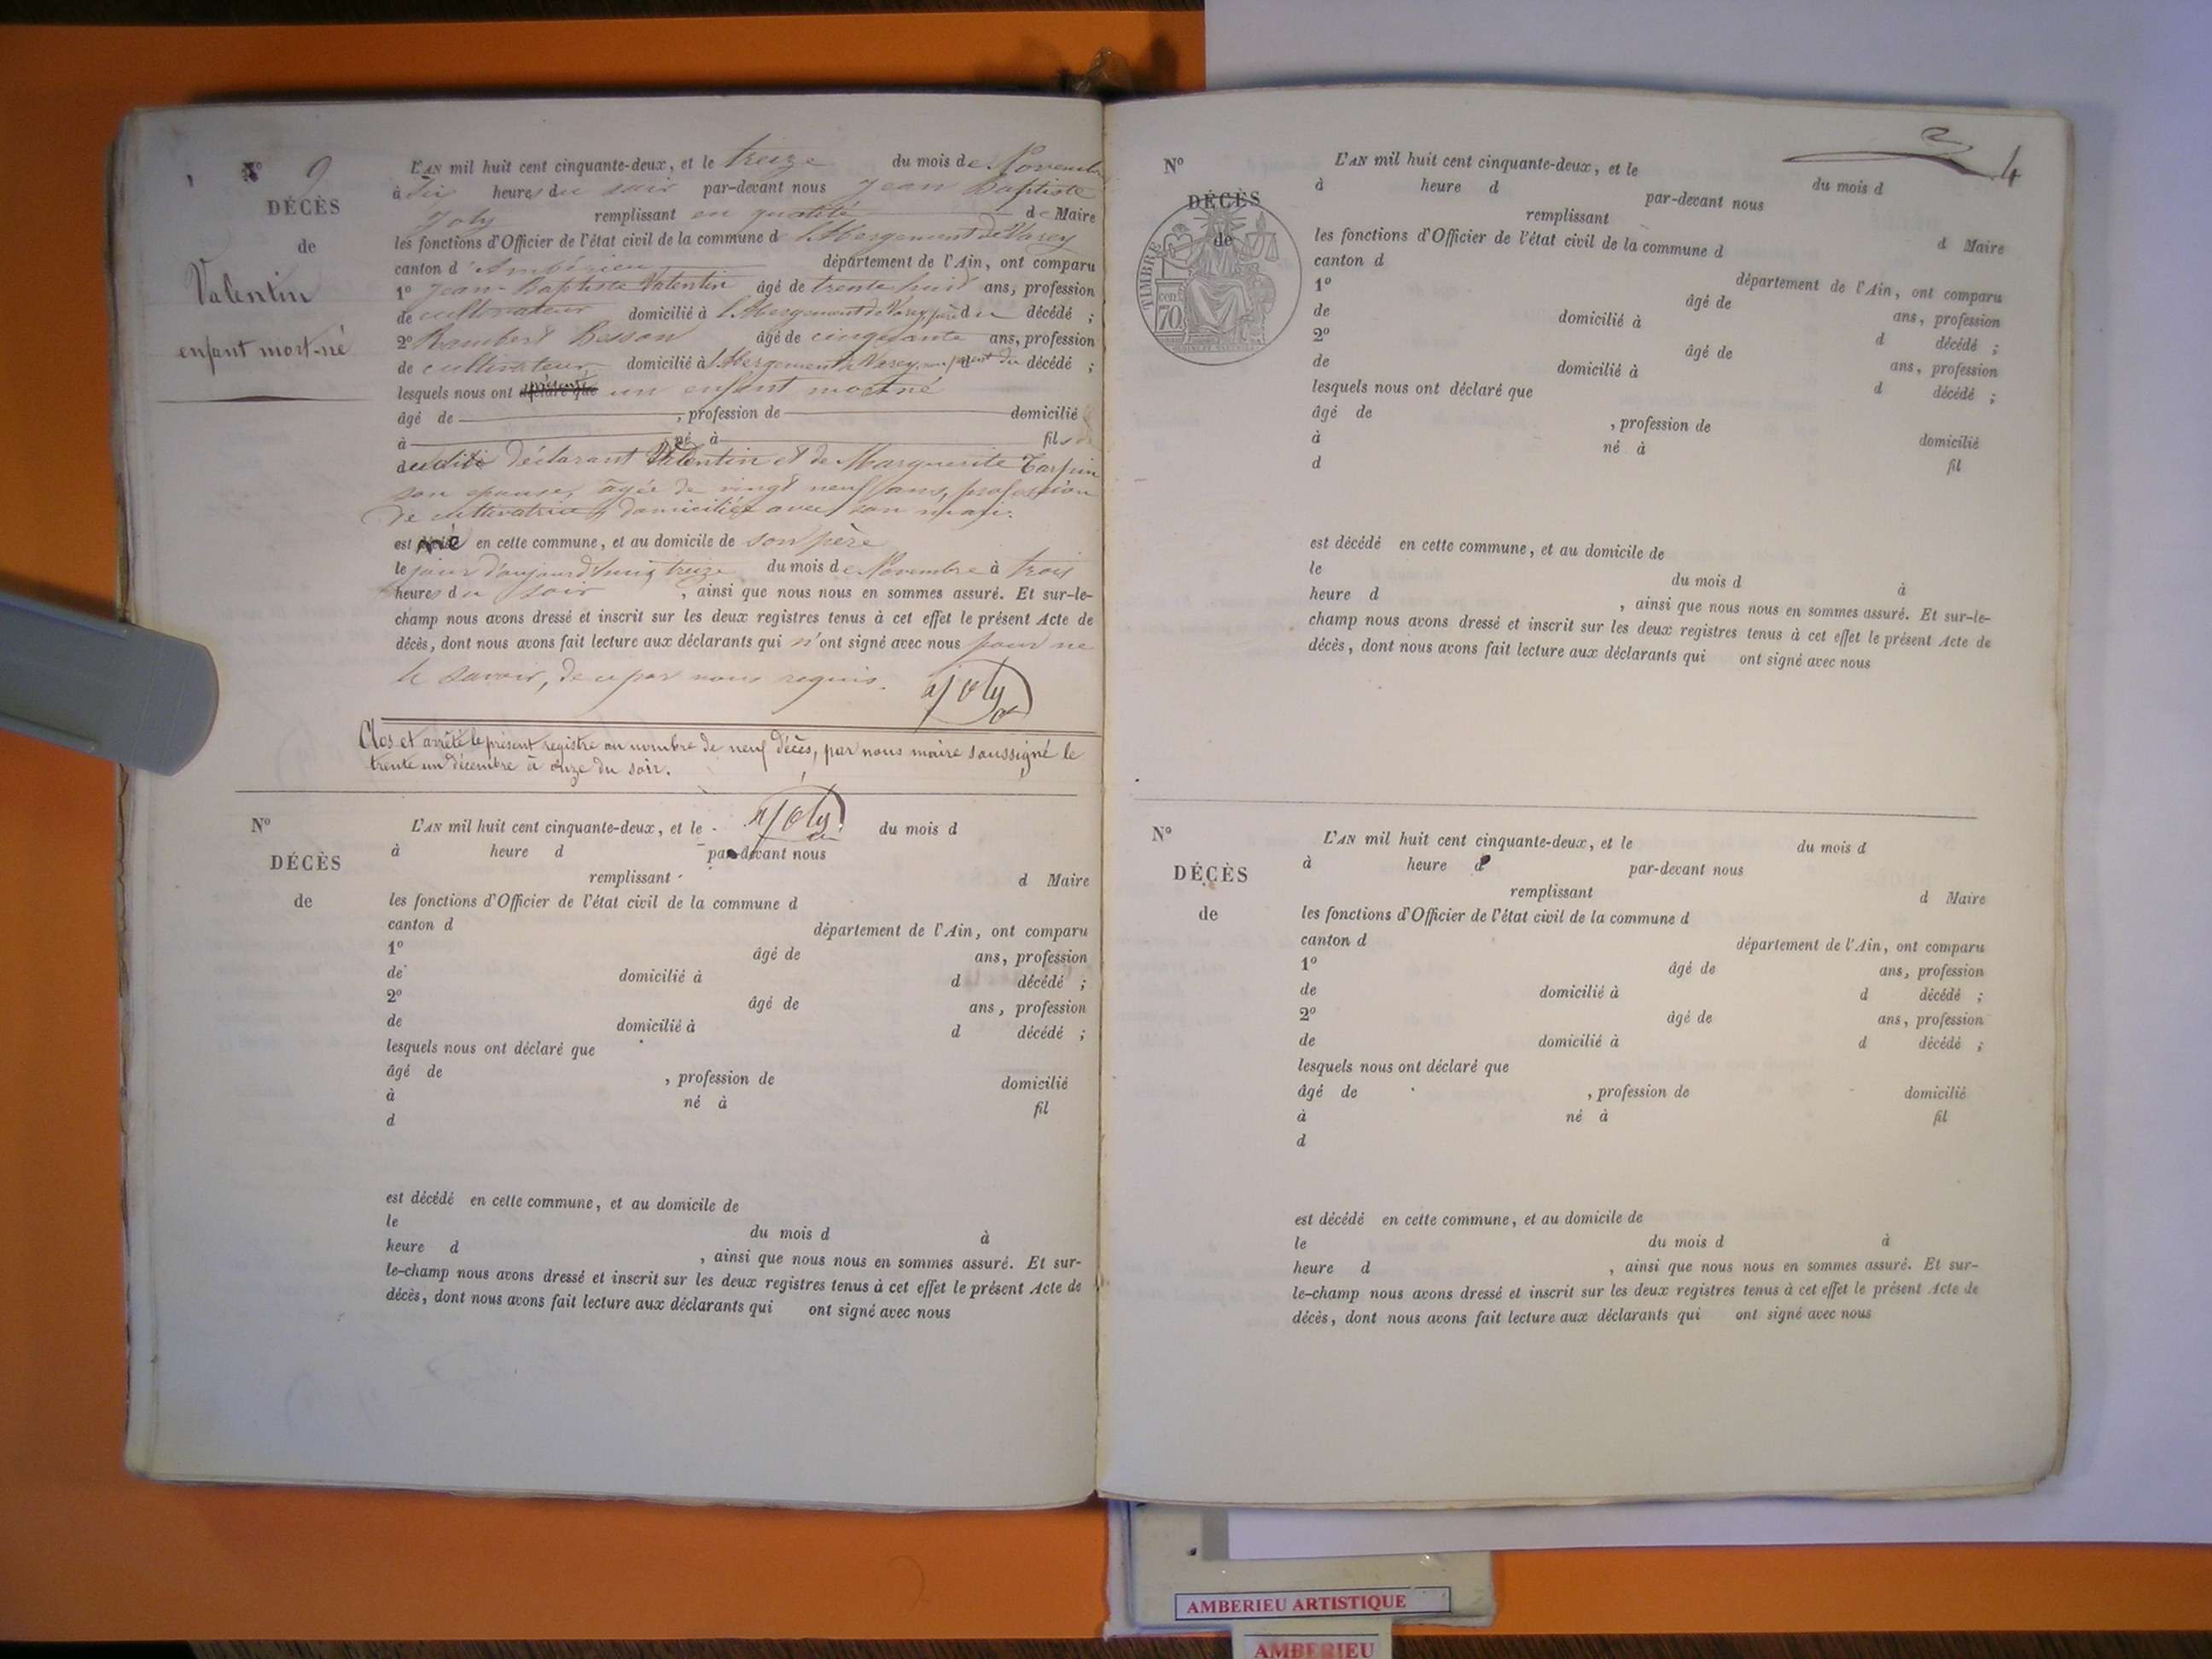 N° 9
DÉCÈS
de
Valentin
enfant mort-né
L'AN mil huit cent cinquante-deux, et le treize du mois de Novembre
à dix heures du soir par-devant nous Jean Baptiste
Joly remplissant en qualité de Maire
les fonctions d'Officier de l'état civil de la commune de l'Abergement de Varey
canton d'Ambérieu département de l'Ain, ont comparu
1° Jean-Baptiste Valentin âgé de trente huit ans, profession
de cultivateur domicilié à l'Abergement de Varey, père du décédé ;
2° Rambert Besson âgé de cinquante ans, profession
de cultivateur domicilié à l'Abergement de Varey, non parent du décédé ;
lesquels nous ont présenté un enfant mort né
âgé de , profession de domicilié
à né à fils
dudit déclarant Valentin et de Marguerite
son épouse, âgée de vingt neuf ans, profession
de cultivatrice, domiciliée avec son mari.
est né en cette commune, et au domicile de son père
le jour d'aujourd'hui, treize du mois de Novembre à trois
heures du soir , ainsi que nous nous en sommes assuré. Et sur-le-
champ nous avons dressé et inscrit sur les deux registres tenus à cet effet le présent Acte de
décès, dont nous avons fait lecture aux déclarants qui n'ont signé avec nous pour ne
le savoir, de ce par nous requis. Joly
Clos et arrêté le présent registre au nombre de neuf décès, par nous maire soussigné le
trente un décembre à onze du soir.
Joly
N°
DÉCÈS
de
L'AN mil huit cent cinquante-deux, et le du mois d
à heure d par-devant nous
remplissant d Maire
les fonctions d'Officier de l'état civil de la commune d
canton d département de l'Ain, ont comparu
1° âgé de ans, profession
de domicilié à d décédé ;
2° âgé de ans, profession
de domicilié à d décédé ;
lesquels nous ont déclaré que
âgé de , profession de domicilié
à né à fil
d
est décédé en cette commune, et au domicile de
le du mois d à
heure d , ainsi que nous nous en sommes assuré. Et sur-
le-champ nous avons dressé et inscrit sur les deux registres tenus à cet effet le présent Acte de
décès, dont nous avons fait lecture aux déclarants qui ont signé avec nous
4
N°
DÉCÈS
de
TIMBRE
cent.
70
L'AN mil huit cent cinquante-deux, et le du mois d
à heure d par-devant nous
remplissant d Maire
les fonctions d'Officier de l'état civil de la commune d
canton d département de l'Ain, ont comparu
1° âgé de ans, profession
de domicilié à d décédé ;
2° âgé de ans, profession
de domicilié à d décédé ;
lesquels nous ont déclaré que
âgé de , profession de domicilié
à né à fil
d
est décédé en cette commune, et au domicile de
le du mois d à
heure d , ainsi que nous nous en sommes assuré. Et sur-le-
champ nous avons dressé et inscrit sur les deux registres tenus à cet effet le présent Acte de
décès, dont nous avons fait lecture aux déclarants qui ont signé avec nous
N°
DÉCÈS
de
L'AN mil huit cent cinquante-deux, et le du mois d
à heure d par-devant nous
remplissant d Maire
les fonctions d'Officier de l'état civil de la commune d
canton d département de l'Ain, ont comparu
1° âgé de ans, profession
de domicilié à d décédé ;
2° âgé de ans, profession
de domicilié à d décédé ;
lesquels nous ont déclaré que
âgé de , profession de domicilié
à né à fil
d
est décédé en cette commune, et au domicile de
le du mois d à
heure d , ainsi que nous nous en sommes assuré. Et sur-
le-champ nous avons dressé et inscrit sur les deux registres tenus à cet effet le présent Acte de
décès, dont nous avons fait lecture aux déclarants qui ont signé avec nous
AMBERIEU ARTISTIQUE
AMBERIEU